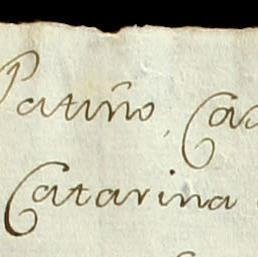 Patiño, Ca
Catarina